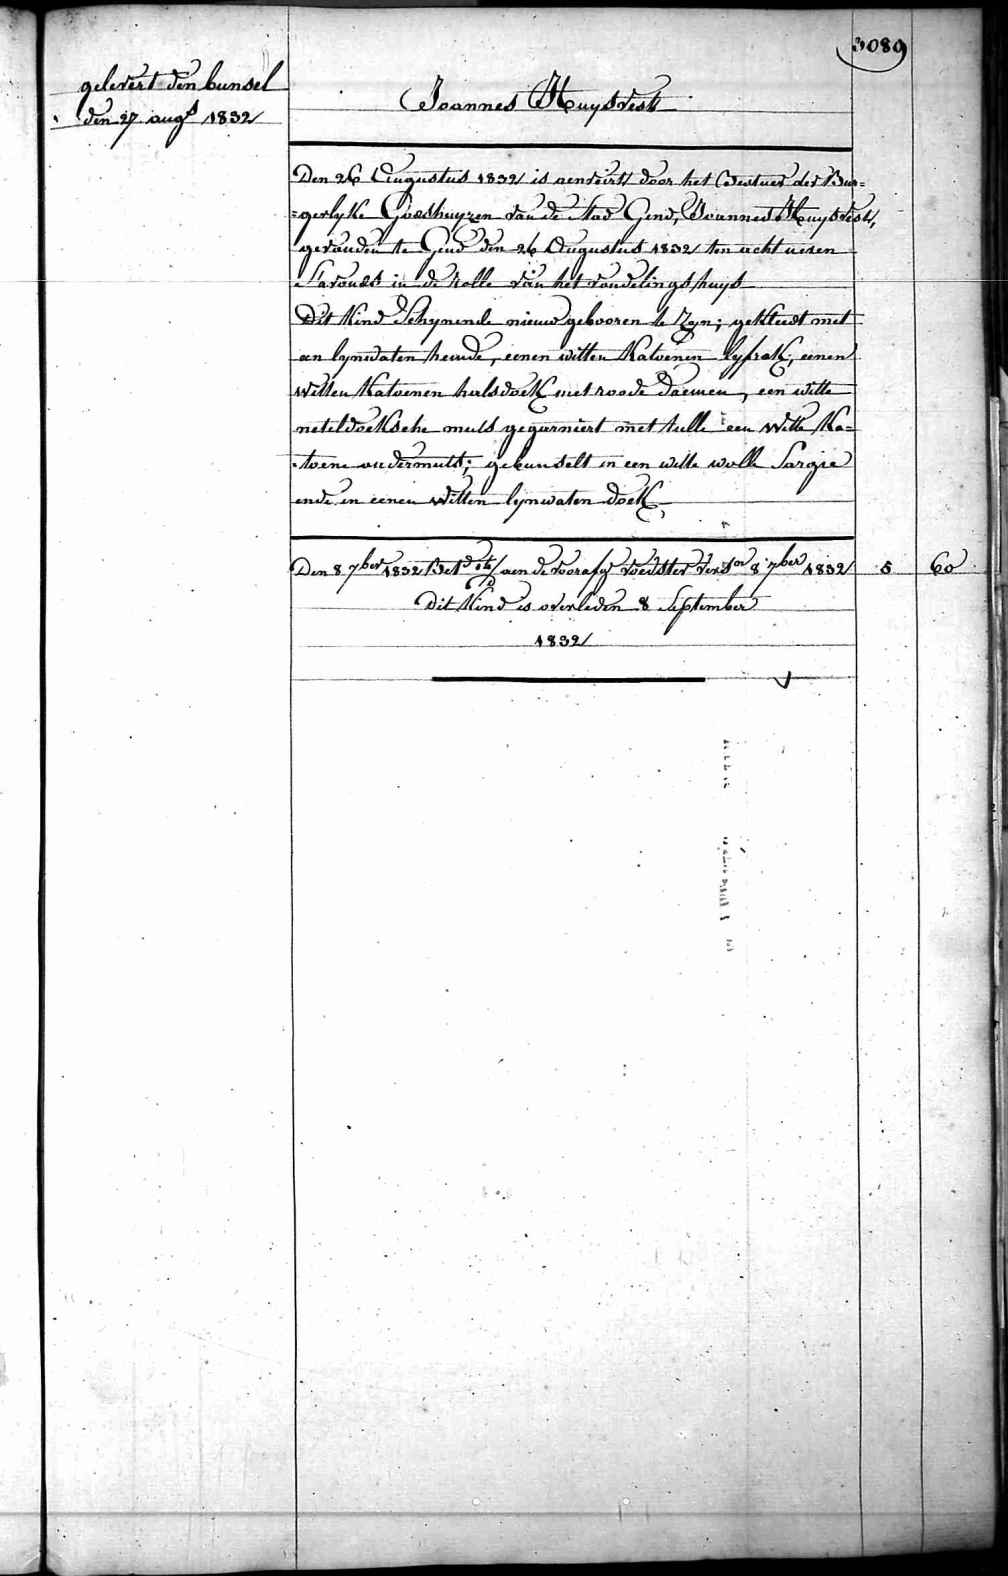 3089
gelevert den bunsel
den 27 augs 1832
Joannes Huysvest
Den 26 Augustus 1832 is aenveirt door het Bestuer der Bur=
=gerlyke Godshuyzen van de stad Gend, Joannes Huysvest,
gevonden te Gend den 26 Augustus 1832 ten acht uren
s'avonds in de rolle van het vondelingshuys
Dit Kind schynende nieuw gebooren te Zyn; gekleedt met
een lynwaten hemde, eenen witten Katoenen lyfrok, eenen
witten Katoenen halsdoek met roode blaemen, een witte
neteldoeksche muts gegarniert met tulle een witte Ka=
=toene ondermuts; gebunselt in een witte wolle Sargie
ende in eenen witten lynwaten doek,
Den 8 7ber 1832 Bet aen de voorafg voedster vers 8 7ber 1832 5 60
Dit Kind is overleden 8 September
1832